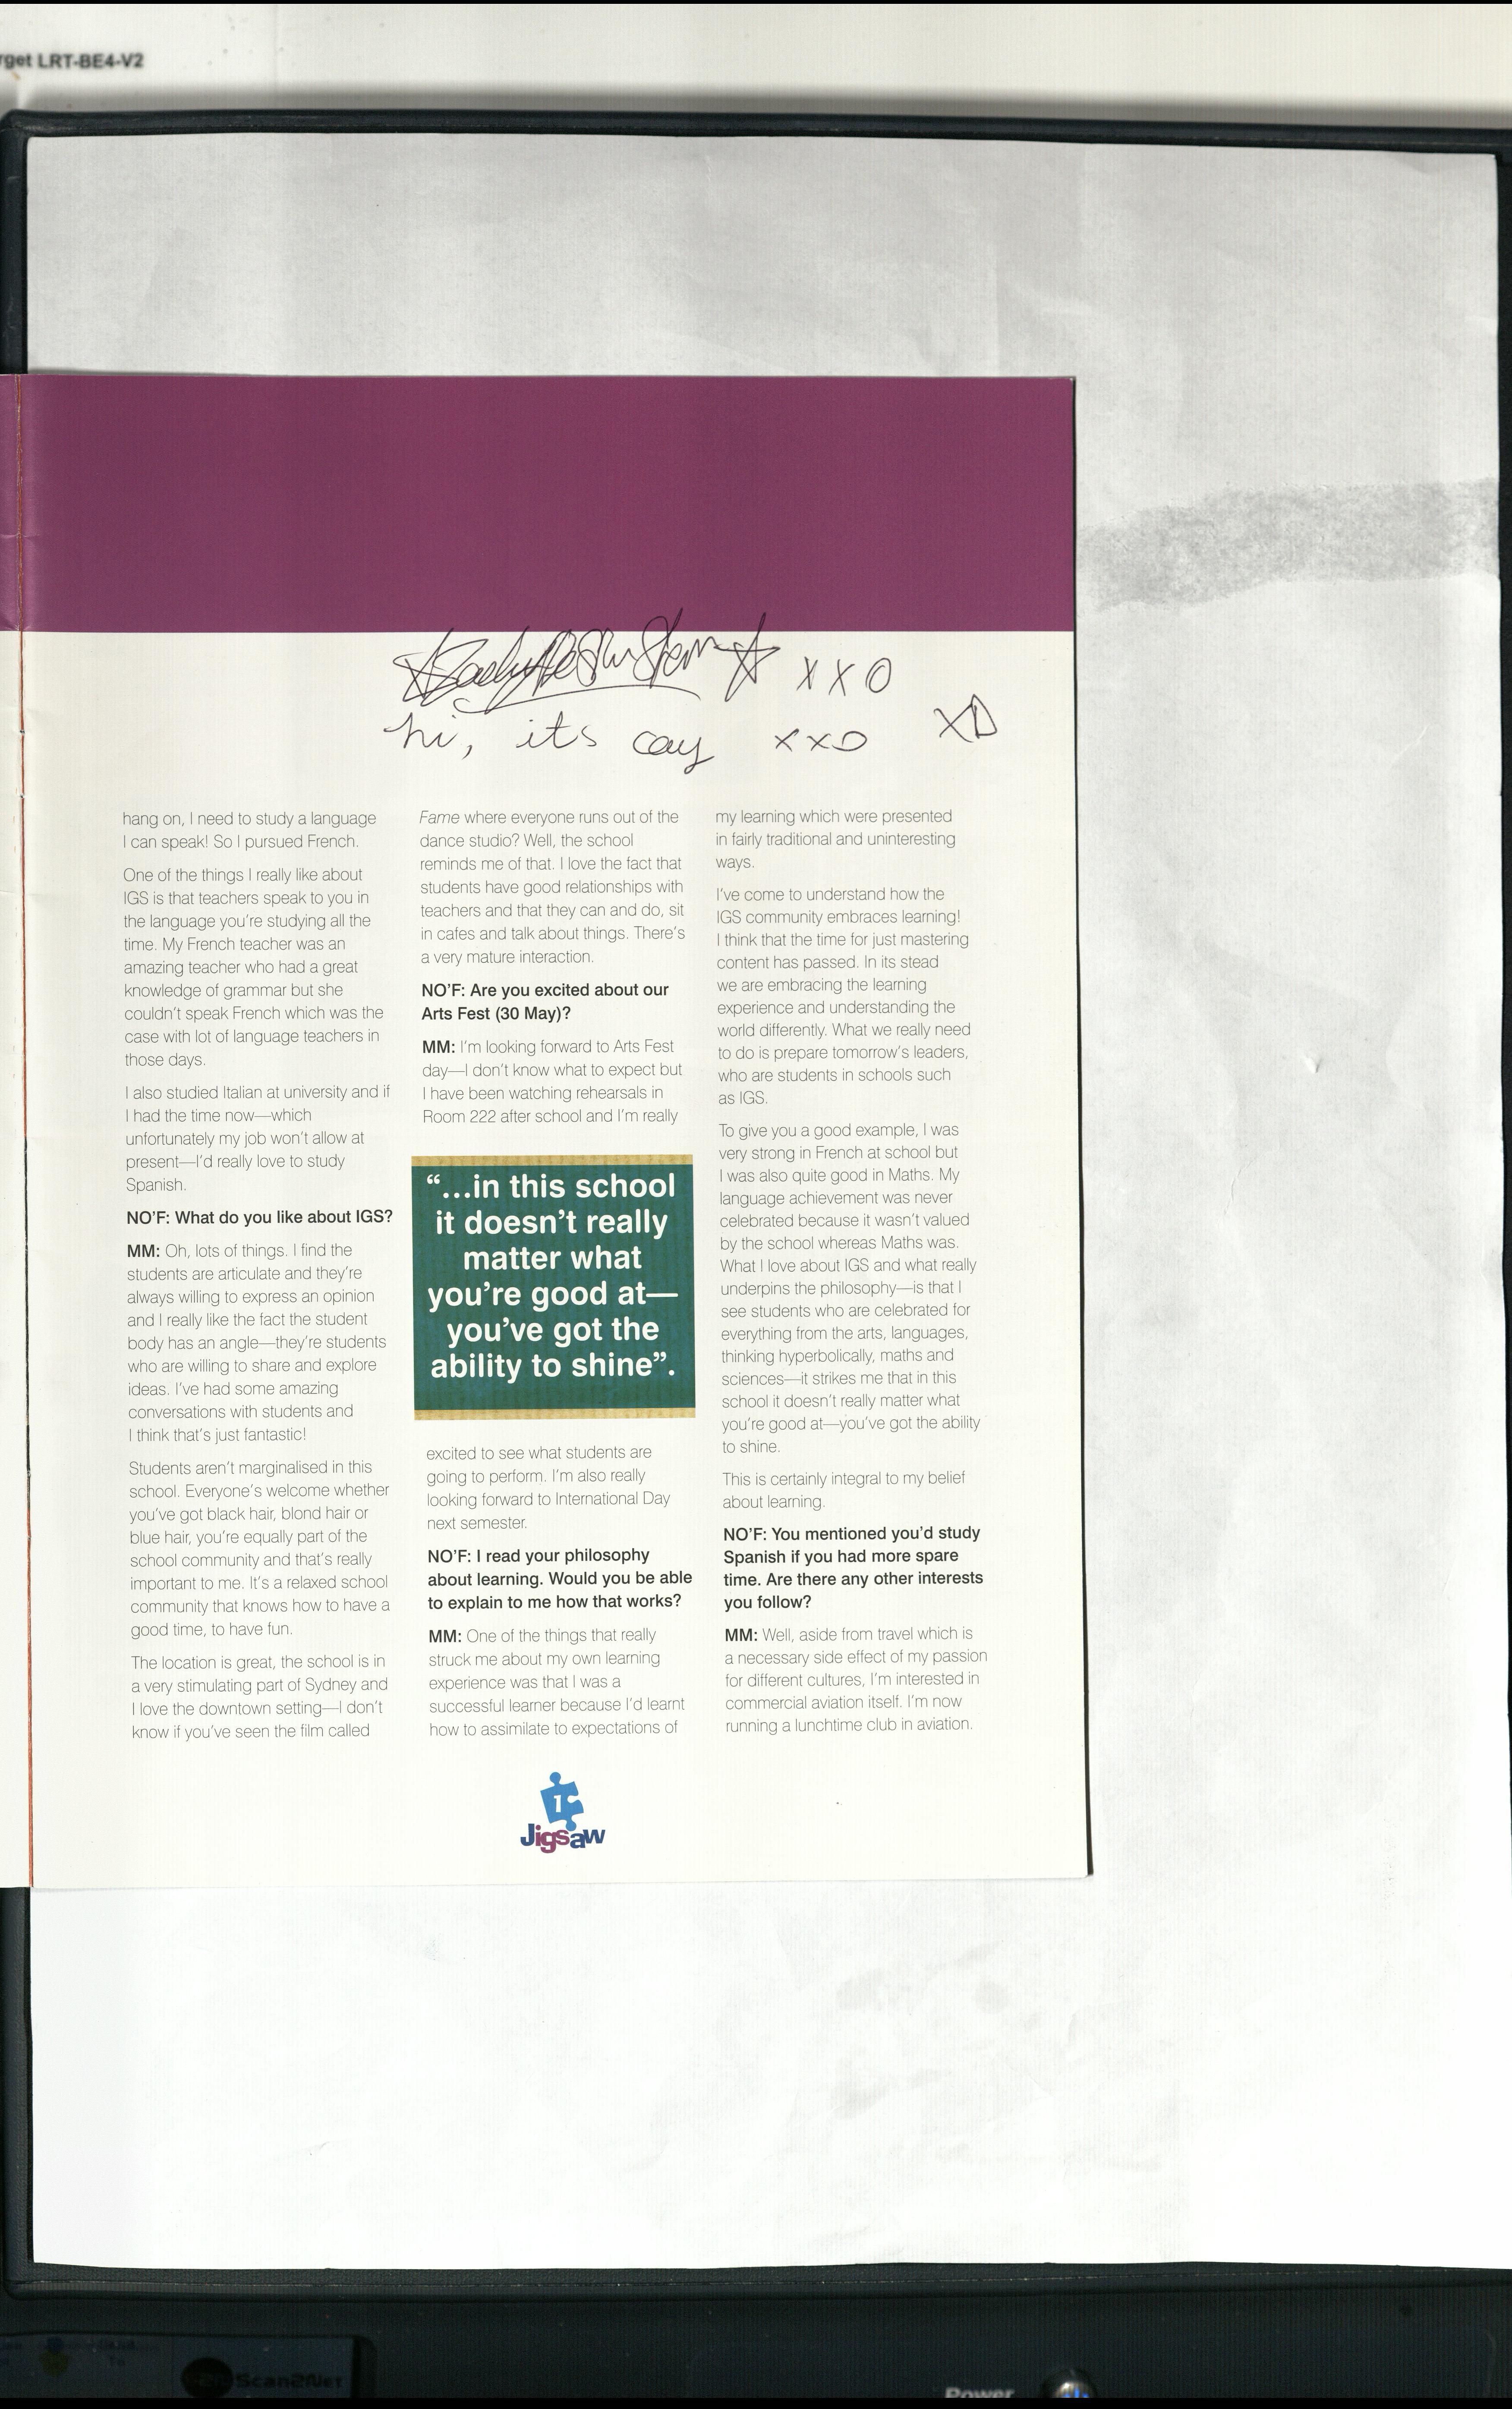 rget LRT-BE4-V2
xxo
hi, its cay xxo XD
hang on, I need to study a language
I can speak! So I pursued French.
One of the things I really like about
IGS is that teachers speak to you in
the language you're studying all the
time. My French teacher was an
amazing teacher who had a great
knowledge of grammar but she
couldn't speak French which was the
case with lot of language teachers in
those days.
I also studied Italian at university and if
I had the time now—which
unfortunately my job won't allow at
present—I'd really love to study
Spanish.
NO'F: What do you like about IGS?
MM: Oh, lots of things. I find the
students are articulate and they're
always willing to express an opinion
and I really like the fact the student
body has an angle—they're students
who are willing to share and explore
ideas. I've had some amazing
conversations with students and
I think that's just fantastic!
Students aren't marginalised in this
school. Everyone's welcome whether
you've got black hair, blond hair or
blue hair, you're equally part of the
school community and that's really
important to me. It's a relaxed school
community that knows how to have a
good time, to have fun.
The location is great, the school is in
a very stimulating part of Sydney and
I love the downtown setting—I don't
know if you've seen the film called
Fame where everyone runs out of the
dance studio? Well, the school
reminds me of that. I love the fact that
students have good relationships with
teachers and that they can and do, sit
in cafes and talk about things. There's
a very mature interaction.
NO'F: Are you excited about our
Arts Fest (30 May)?
MM: I'm looking forward to Arts Fest
day—I don't know what to expect but
I have been watching rehearsals in
Room 222 after school and I'm really
“...in this school
it doesn't really
matter what
you're good at—
you've got the
ability to shine”.
excited to see what students are
going to perform. I'm also really
looking forward to International Day
next semester.
NO'F: I read your philosophy
about learning. Would you be able
to explain to me how that works?
MM: One of the things that really
struck me about my own learning
experience was that I was a
successful learner because I'd learnt
how to assimilate to expectations of
my learning which were presented
in fairly traditional and uninteresting
ways.
I've come to understand how the
IGS community embraces learning!
I think that the time for just mastering
content has passed. In its stead
we are embracing the learning
experience and understanding the
world differently. What we really need
to do is prepare tomorrow's leaders,
who are students in schools such
as IGS.
To give you a good example, I was
very strong in French at school but
I was also quite good in Maths. My
language achievement was never
celebrated because it wasn't valued
by the school whereas Maths was.
What I love about IGS and what really
underpins the philosophy—is that I
see students who are celebrated for
everything from the arts, languages,
thinking hyperbolically, maths and
sciences—it strikes me that in this
school it doesn't really matter what
you're good at—you've got the ability
to shine.
This is certainly integral to my belief
about learning.
NO'F: You mentioned you'd study
Spanish if you had more spare
time. Are there any other interests
you follow?
MM: Well, aside from travel which is
a necessary side effect of my passion
for different cultures, I'm interested in
commercial aviation itself. I'm now
running a lunchtime club in aviation.
1
Jigsaw
Scan2Net
Power